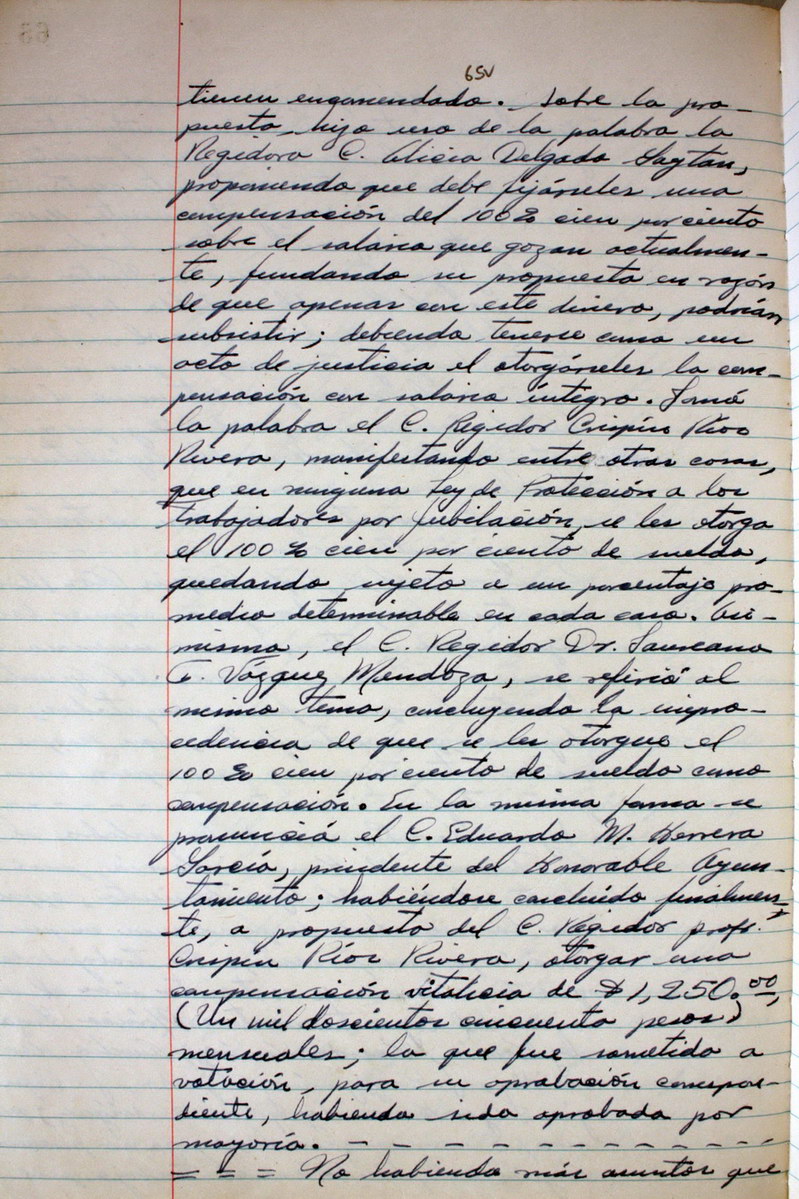 65V
tienen encomendado. Sobre la pro-
puesta hizo uso de la palabra la
Regidora C. Alicia Delgado Gaytan,
proponiendo que debe fijárseles una
compensación del 100% cien por ciento
sobre el salario que gozan actualmen-
te, fundando su propuesta en razón
de que apenas con este dinero, podrían
subsistir; debiendo tenerse como un
acto de justicia el otorgárseles la com-
pensación con salario íntegro. Tomó
la palabra el C. Regidor Crispín Ríos
Rivera, manifestando entre otras cosas,
que en ninguna Ley de Protección a los
trabajadores por jubilación, se les otorga
el 100% cien por ciento de sueldo,
quedando sujeto a un porcentaje pro-
medio determinable en cada caso. Asi-
mismo, el C. Regidor Dr. Laureano
T. Vázquez Mendoza, se refirió al
mismo tema, concluyendo la impro-
cedencia de que se les otorgue el
100% cien por ciento de sueldo como
compensación. En la misma forma se
pronunció el C. Eduardo M. Herrera
García, presidente del Honorable Ayun-
tamiento; habiéndose concluído finalmen-
te, a propuesta del C. Regidor profr.
Crispín Ríos Rivera, otorgar una
compensación vitalicia de $1,250.00,
(Un mil doscientos cincuenta pesos)
mensuales; la que fue sometida a
votación, para su aprobación correspon-
diente, habiendo sido aprobada por
mayoría. - - - - - - - - - - - -
= = = No habiendo más asuntos que